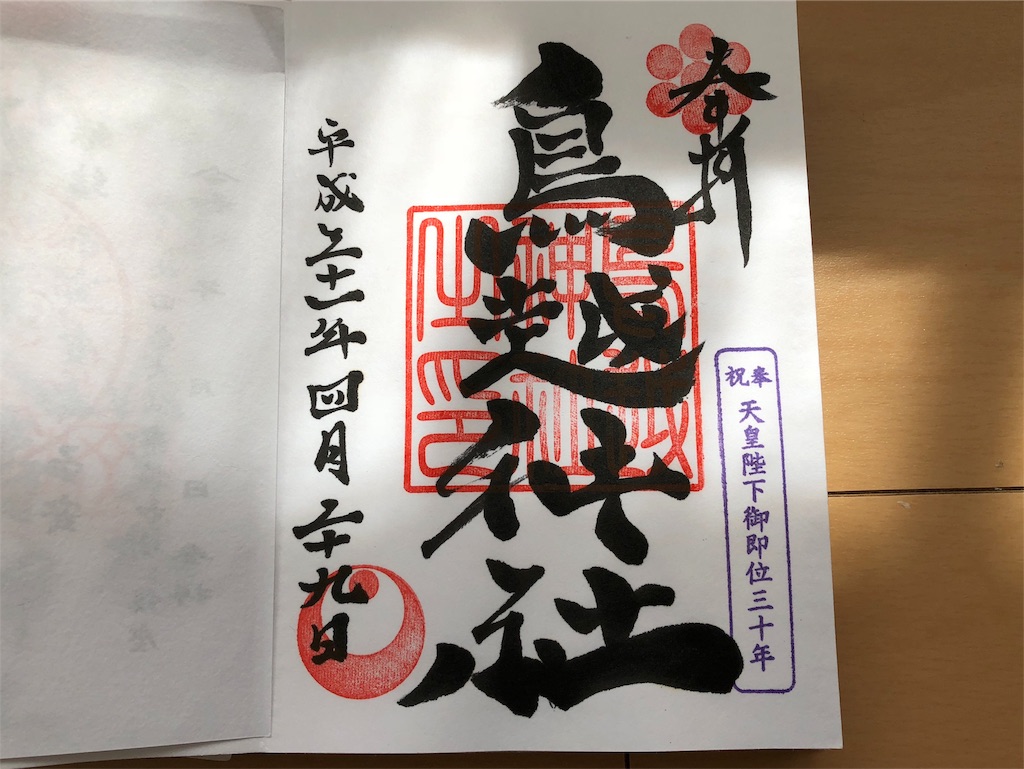 奉拝
奉祝
天皇陛下御即位三十年
鳥越神社
鳥越神社之印
平成三十一年四月二十九日